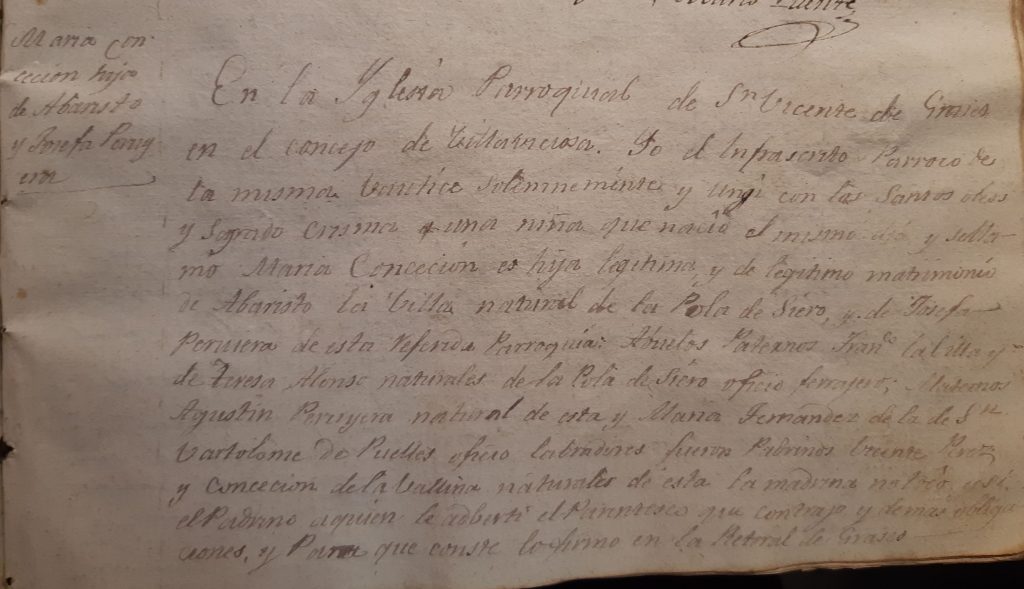 Maria Con-
cecion hija
de Abaristo
y Josefa Peruy
era
En la Yglesia Parroquial de Sn Vicente de Grases
en el concejo de Villaviciosa. Yo el Infrascrito Parroco de
la misma Vautice Solemnemente y ungi con los Santos oleos
y Sagrado Crisma a una niña que nacio el mismo dia y sella-
mó Maria Conceción es hija legitima y de legitimo matrimonio
de Abaristo la Villa natural de la Pola de Siero, y de Josefa
Peruiera de esta referida Parroquia: Abuelos Paternos Frando la Villa y
de Teresa Alonso naturales de la Pola de Siero oficio ferrajero; Maternos
Agustin Peruyera natural de esta y Maria Fernandez de la de Sn
Vartolome de Puelles oficio labradores fueron Padrinos Vicente Perez
y Concecion de la Vallina naturales de esta la madrina no tocó, y si
el Padrino aquien le adberti el Parentesco que contrajo y demas obliga
ciones, y Para que conste lo firmo en la Retoral de Grases